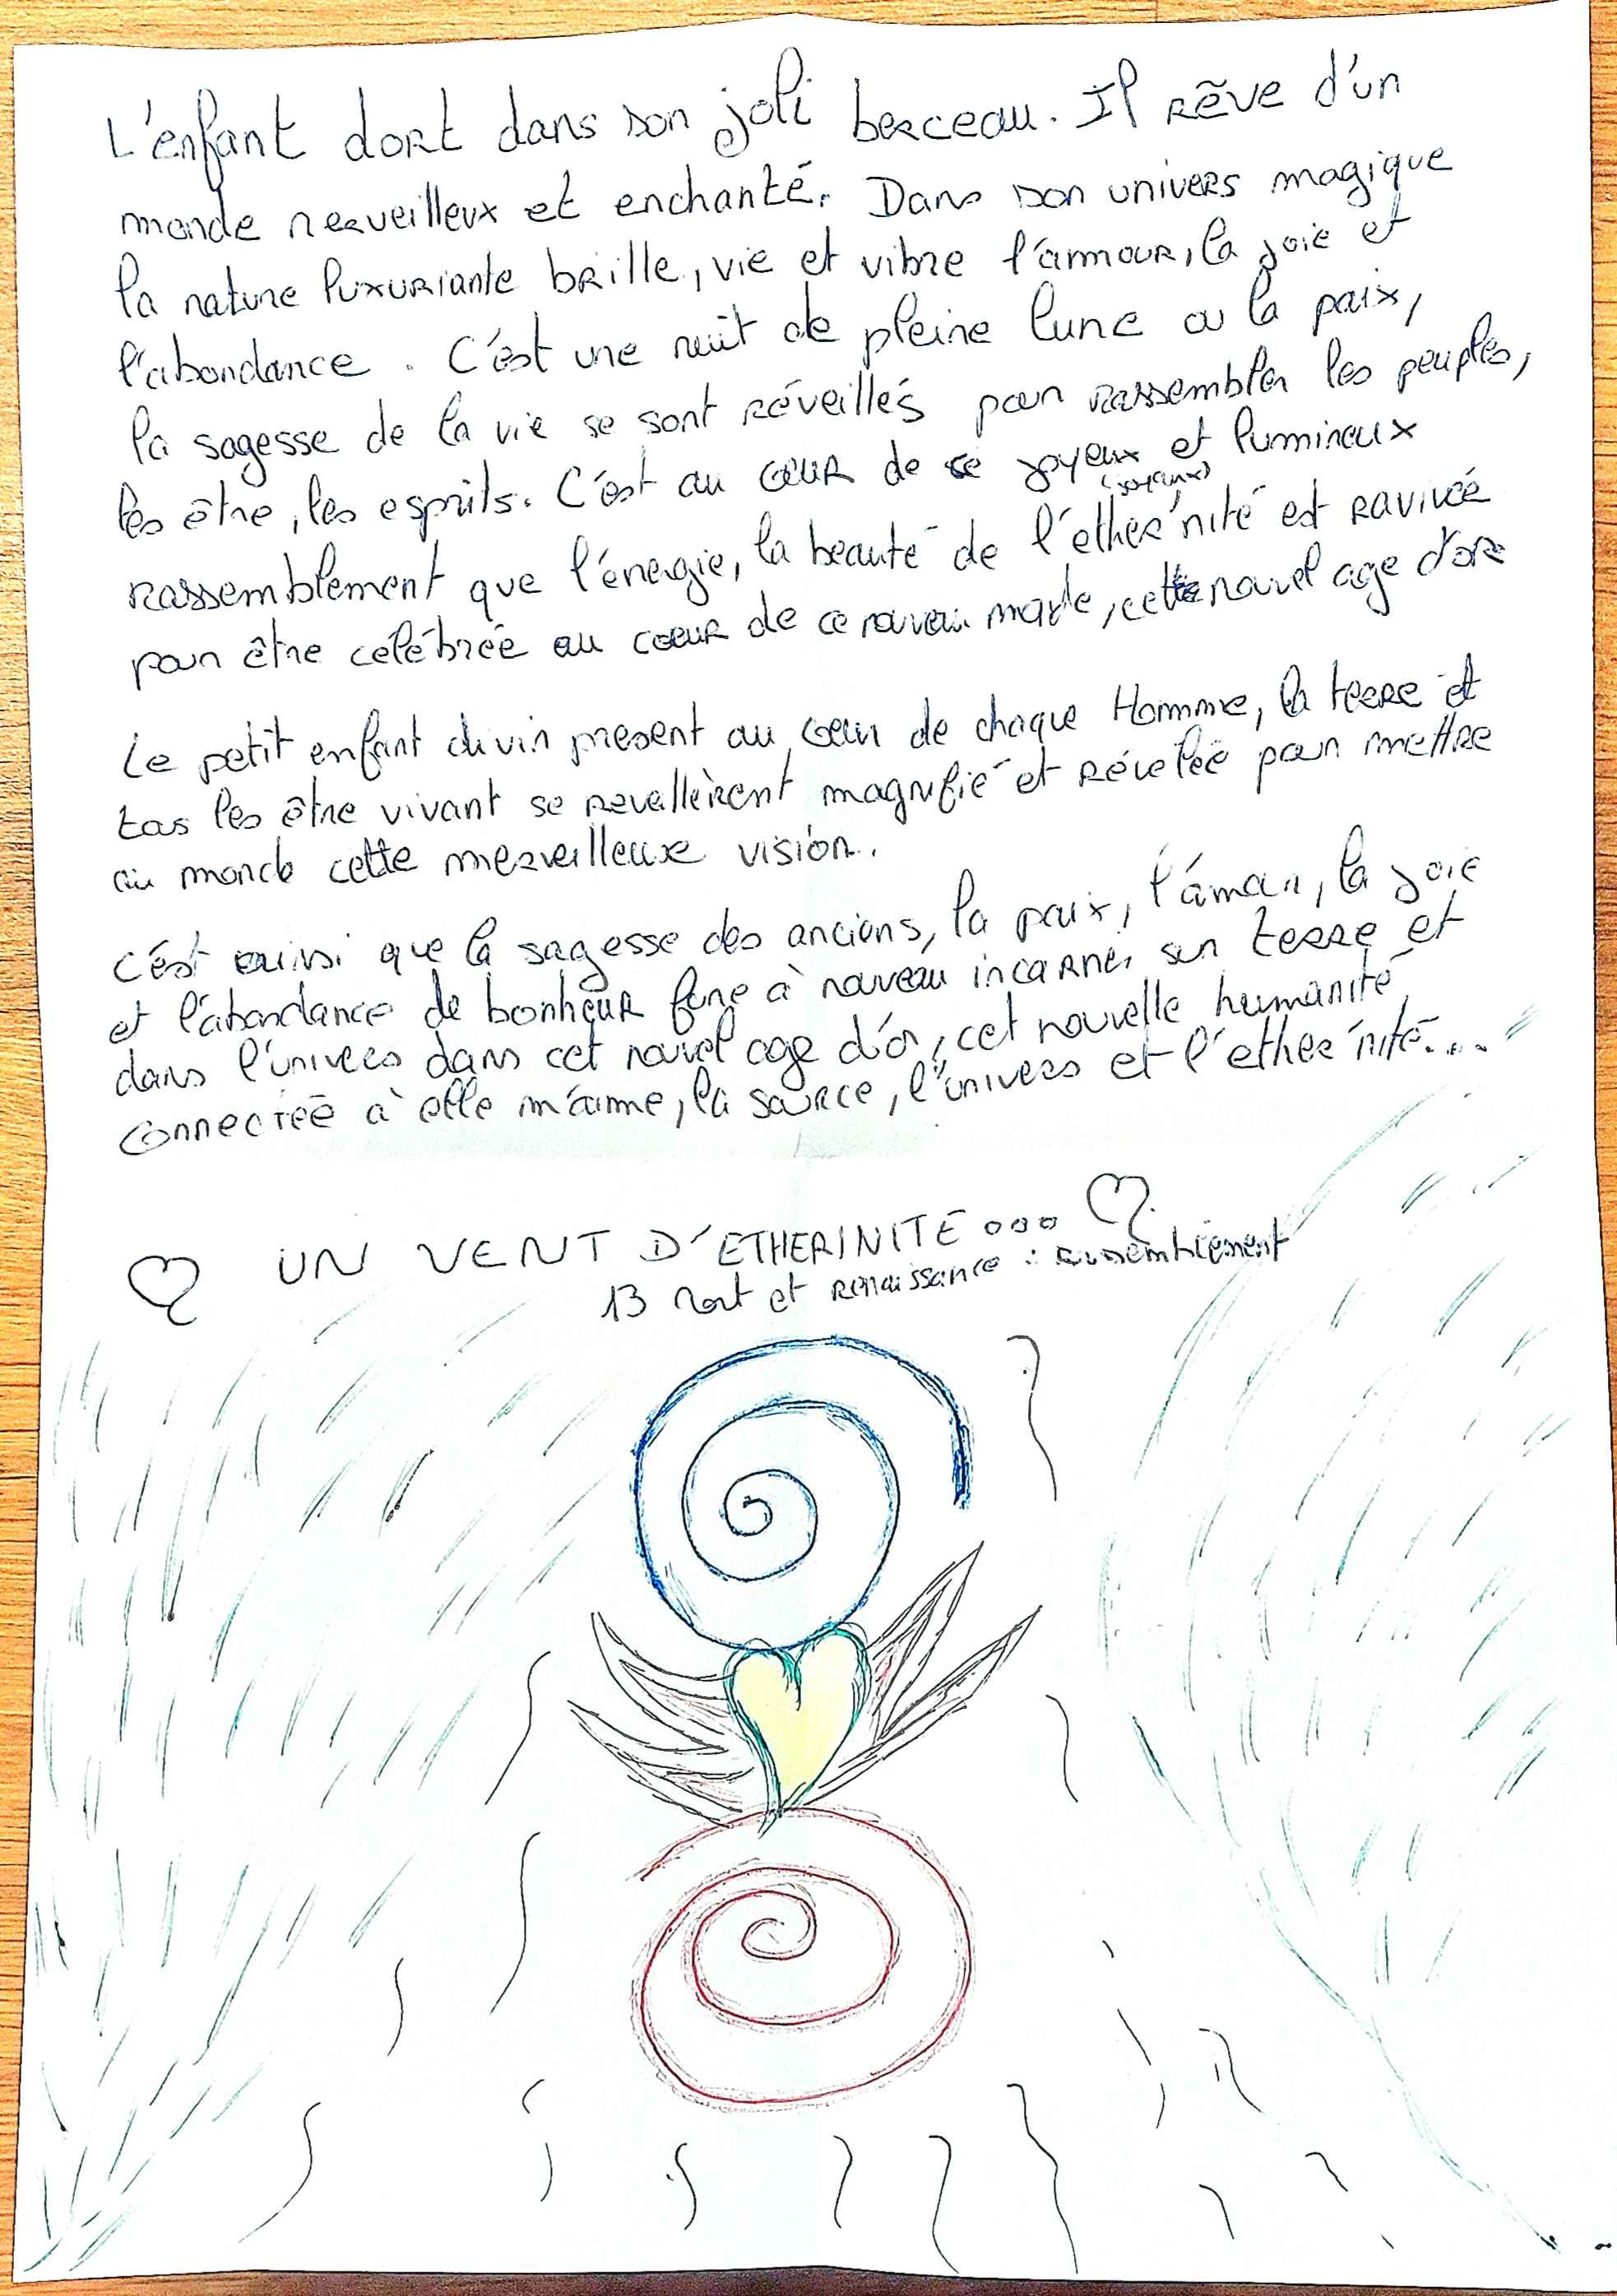 L'enfant dort dans son joli berceau. Il rêve d'un
monde nerveilleux et enchanté. Dans son univers magique
la nature luxuriante brille, vie et vibre l'amour, la joie et
l'abondance. C'est une nuit de pleine lune ou la paix,
la sagesse de la vie se sont réveillés pour rassembler les peuples,
les être, les esprits. C'est au cœur de ce joyeux et lumineux
(joyaux)
rassemblement que l'énergie, la beauté de l'ether'nité est ravivée
pour être célébrée au coeur de ce nouveau monde, cette nouvel age d'or
Le petit enfant divin present au cœur de chaque Homme, la terre et
tous les être vivant se revellèrent magnifié et révelée pour mettre
au monde cette merveilleuse vision.
C'est ainsi que la sagesse des anciens, la paix, l'amour, la joie
et l'abondance de bonheur fure à nouveau incarner sur terre et
dans l'univers dans cet nouvel age d'or, cet nouvelle humanité,
connectée à elle m'aime, la source, l'univers et l'ether'nité....
UN VENT D'ETHERINITÉ ...
13 Mort et renaissance : rassemblement